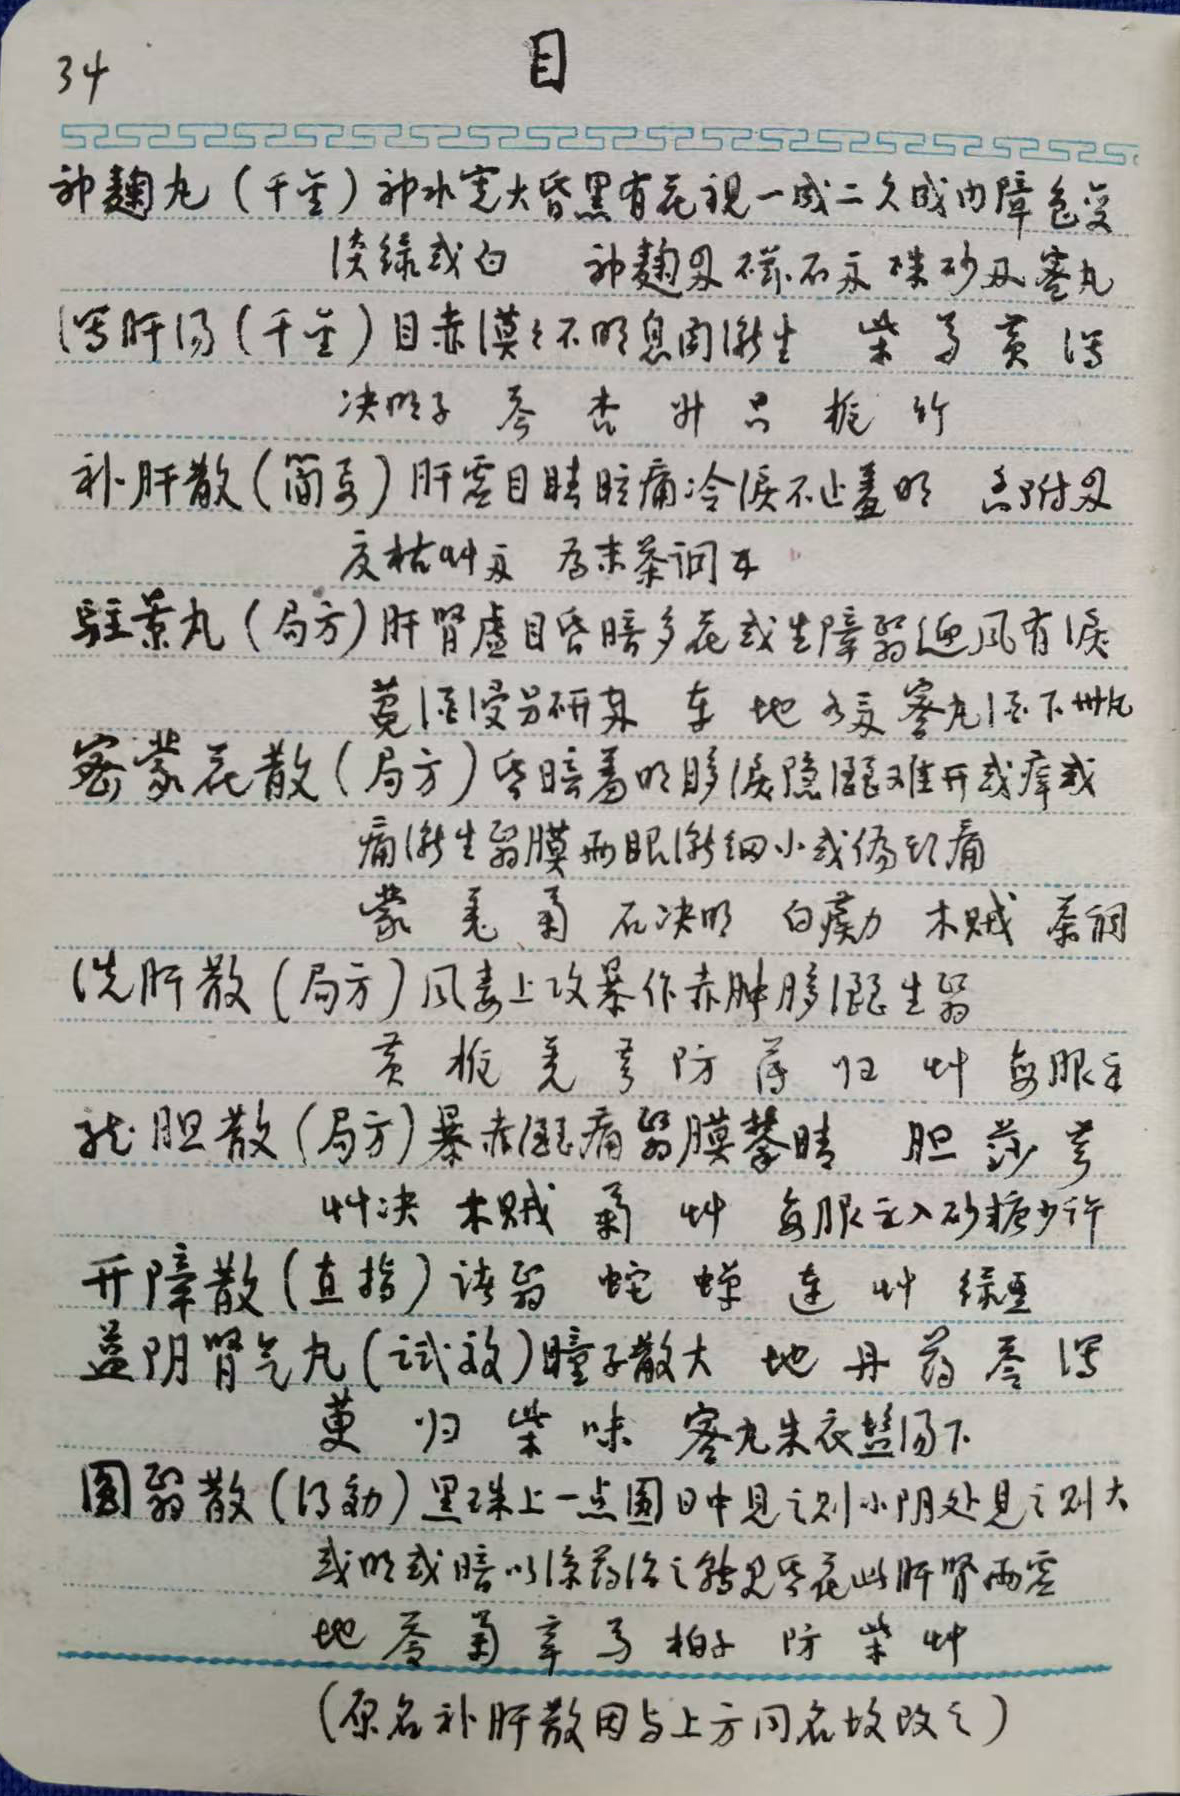 34
目
神麴丸（千金）神水宽大昏黑有花视一成二久成内障色变
淡绿或白 神麴 磁石 硃砂 蜜丸
泻肝汤（千金）目赤漠々不明息肉渐生 柴 芍 黄 泻
决明子 苓 杏 升 只 栀 竹
补肝散（简易）肝虚目睛眩痛冷淚不止羞明 香附
夏枯艸 为末茶调下
駐景丸（局方）肝腎虚目昏暗多花或生障翳迎风有淚
菟酒浸另研 车 地 蜜丸酒下卅丸
密蒙花散（局方）昏暗羞明眵淚隐涩难开或痒或
痛渐生翳膜两眼渐细小或偏头痛
蒙 羌 菊 石决明 白蒺力 木贼 茶调
洗肝散（局方）风毒上攻暴作赤肿眵涩生翳
黄 栀 羌 芎 防 薄 归 艸 每服
龙胆散（局方）暴赤涩痛翳膜攀睛 胆 莎 芎
艸决 木贼 菊 艸 每服 入砂糖少许
开障散（直指）诸翳 蛇 蟬 连 艸 绿豆
益阴腎气丸（试效）瞳子散大 地 丹 药 苓 泻
萸 归 柴 味 蜜丸朱衣盐汤下
圆翳散（得効）黑珠上一点圆日中见之则小阴处见之则大
或明或暗以凉药治之转见昏花此肝腎两虚
地 苓 菊 辛 芎 柏子 防 柴 艸
（原名补肝散因与上方同名故改之）